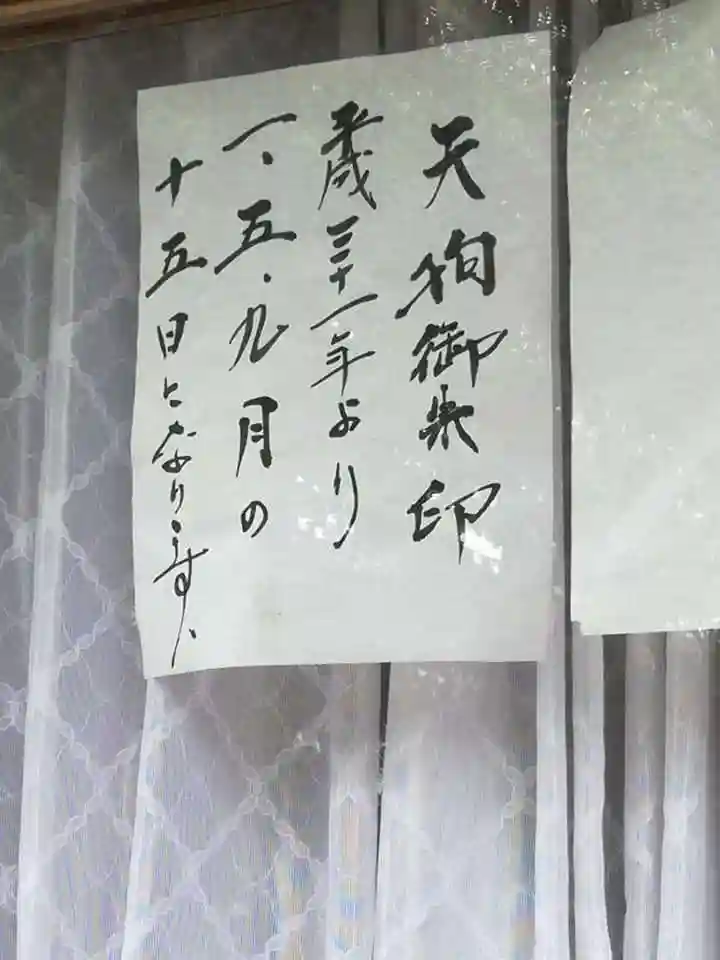 天狗御朱印
平成三十一年より
一、五・九月の
十五日となります、